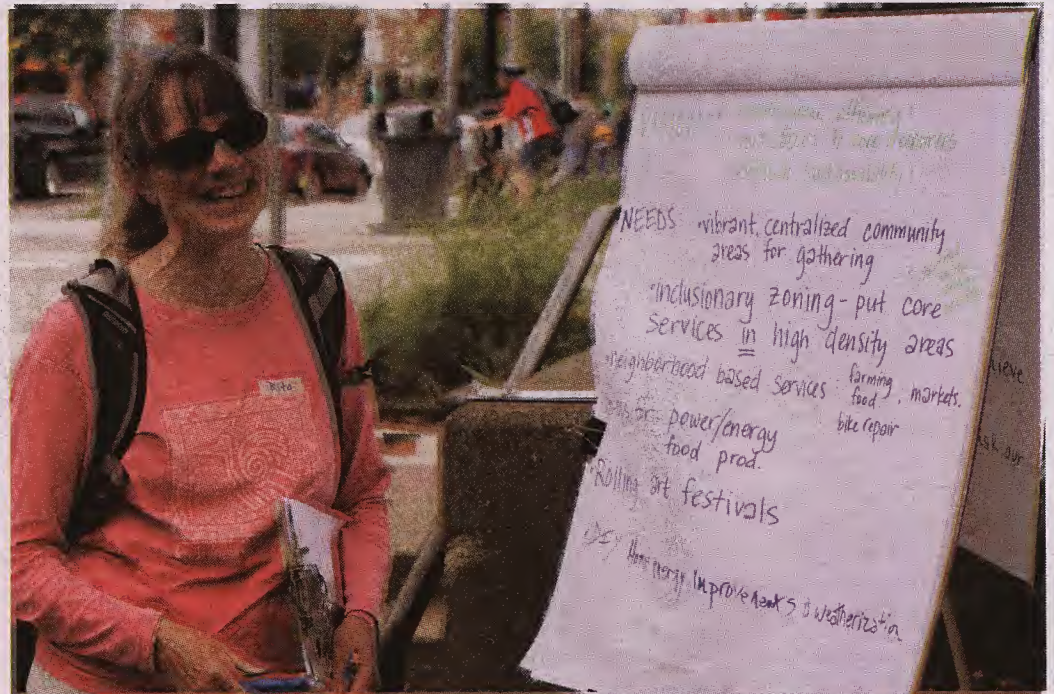 Rita
NEEDS • vibrant, centralized community
areas for gathering
• inclusionary zoning - put core
services in high density areas
• neighborhood based services: farming, markets,
food
bike repair
power/energy
food prod.
• Rolling art festivals
• DIY Home energy improvements & weatherization
lieve
ask our